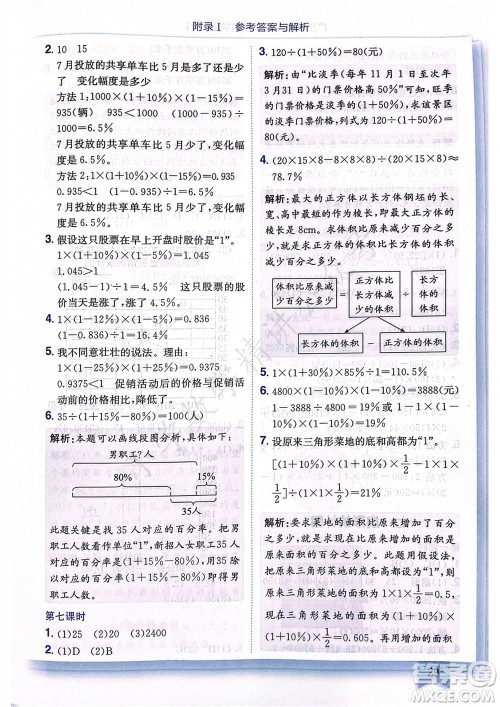 附录Ⅰ 参考答案与解析
2. 10 15
7月投放的共享单车比5月少了 变化幅度是多少
方法1:1000×(1+10%)×(1-15%)=
935(辆) 935<1000 (1000-935)÷
1000=6.5%
7月投放的共享单车比5月少了,少了6.5%
方法2:1×(1+10%)×(1-15%)=0.935
0.935<1 (1-0.935)÷1=6.5%
7月投放的共享单车比5月少了,少了6.5%
3. 假设这只股票在早上开盘时股价是“1”。
1×(1+10%)×(1-5%)=1.045
1.045>1
(1.045-1)÷1=4.5% 这只股票的股价
当天是涨了,涨了4.5%。
4. 1×(1-12%)×(1-5%)=0.836
(1-0.836)÷1=16.4%
5. 我不同意壮壮的说法。理由:
1×(1-25%)×(1+25%)=0.9375
0.9375<1 促销活动后的价格与促销
活动前的价格相比,降低了。
6. 35÷(1+15%-80%)=100(人)
解析:本题可以画线段图分析:
男职工?人
80% 15%
35人
此题关键是找 35 人对应的百分率。把男
职工人数看作单位“1”,新招入35人对应
的是男职工人数的(1+15%-80%),用
35 人除以 35 人对应的百分率,求出男职
工人数。
第七课时
1. (1)25 (2)20 (3)2400
2. (1)D (2)B
3. 120÷(1+50%)=80(元)
解析:由“比淡季(每年 11 月 1 日至次年
3月31日)的价格高 50%”可知,旺季的
门票价格是淡季的(1+50%),求该景区
的淡季门票价格,列式为120÷(1+50%)=
80(元)。
4. (20×15×8-8×8×8)÷(20×15×8)≈
78.7%
解析:根据题意可知,长方体木料的长、
宽、高中最短的棱长就是最大的正方体的
棱长8cm。求体积比原来减少百分之多
少,就是求正方体的体积比长方体的体积
减少百分之多少。
体积比原来减少百分之多少 = 正方体比长方体减少的体积 ÷ 长方体的体积
长方体的体积 - 正方体的体积
5. 1×(1+10%)×(1-10%)=99%
6. 4800×(1-10%)×(1-10%)=3888(元)
4800×(1-10%×2)=3840(元)
3888>3840 按方式二购买更省钱
7. 设原来三角形菜地的底和高都是“1”。
[(1+10%)×(1+10%)×1/2-1×1×
1/2]÷(1×1×1/2)=21%
解析:要求菜地的面积比原来增加百分之
多少,需要求出原来三角形菜地的面积和
现在三角形菜地的面积。设原来三角形菜
地的底和高都是“1”,则原来三角形菜地
的面积是1×1×1/2=0.5,根据“底和高都增
加10%”,可知现在三角形菜地的底和高
都是原来三角形菜地底和高的(1+10%),
现在三角形菜地的面积是(1+10%)×(1+
10%)×1/2=0.605。再根据“(现在三角形菜
答案圈
MXQE.COM